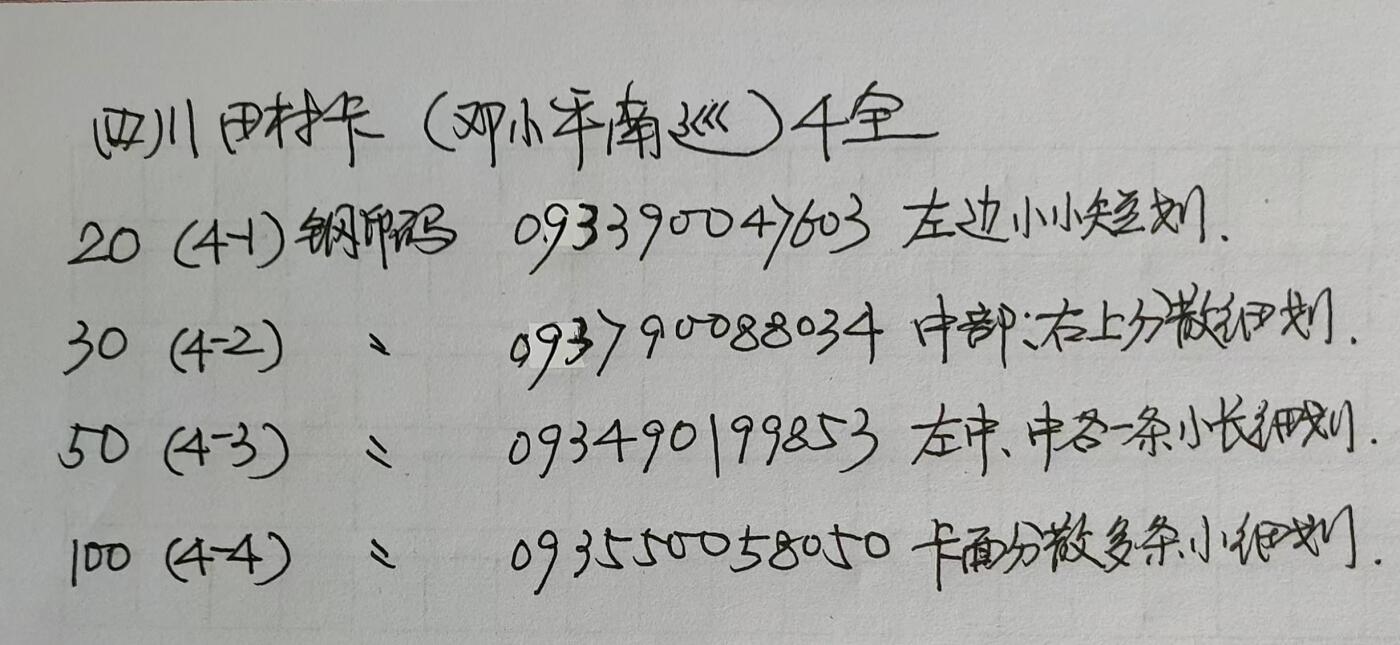 四川田村卡（邓小平南巡）4全
20 (4-1) 钢印码 093390047603 左边小小短划.
30 (4-2) 〃 093790088034 中部；右上分散细划.
50 (4-3) 〃 093490199853 左中、中各一条小长细划.
100 (4-4) 〃 093550058050 卡面分散多条小细划.